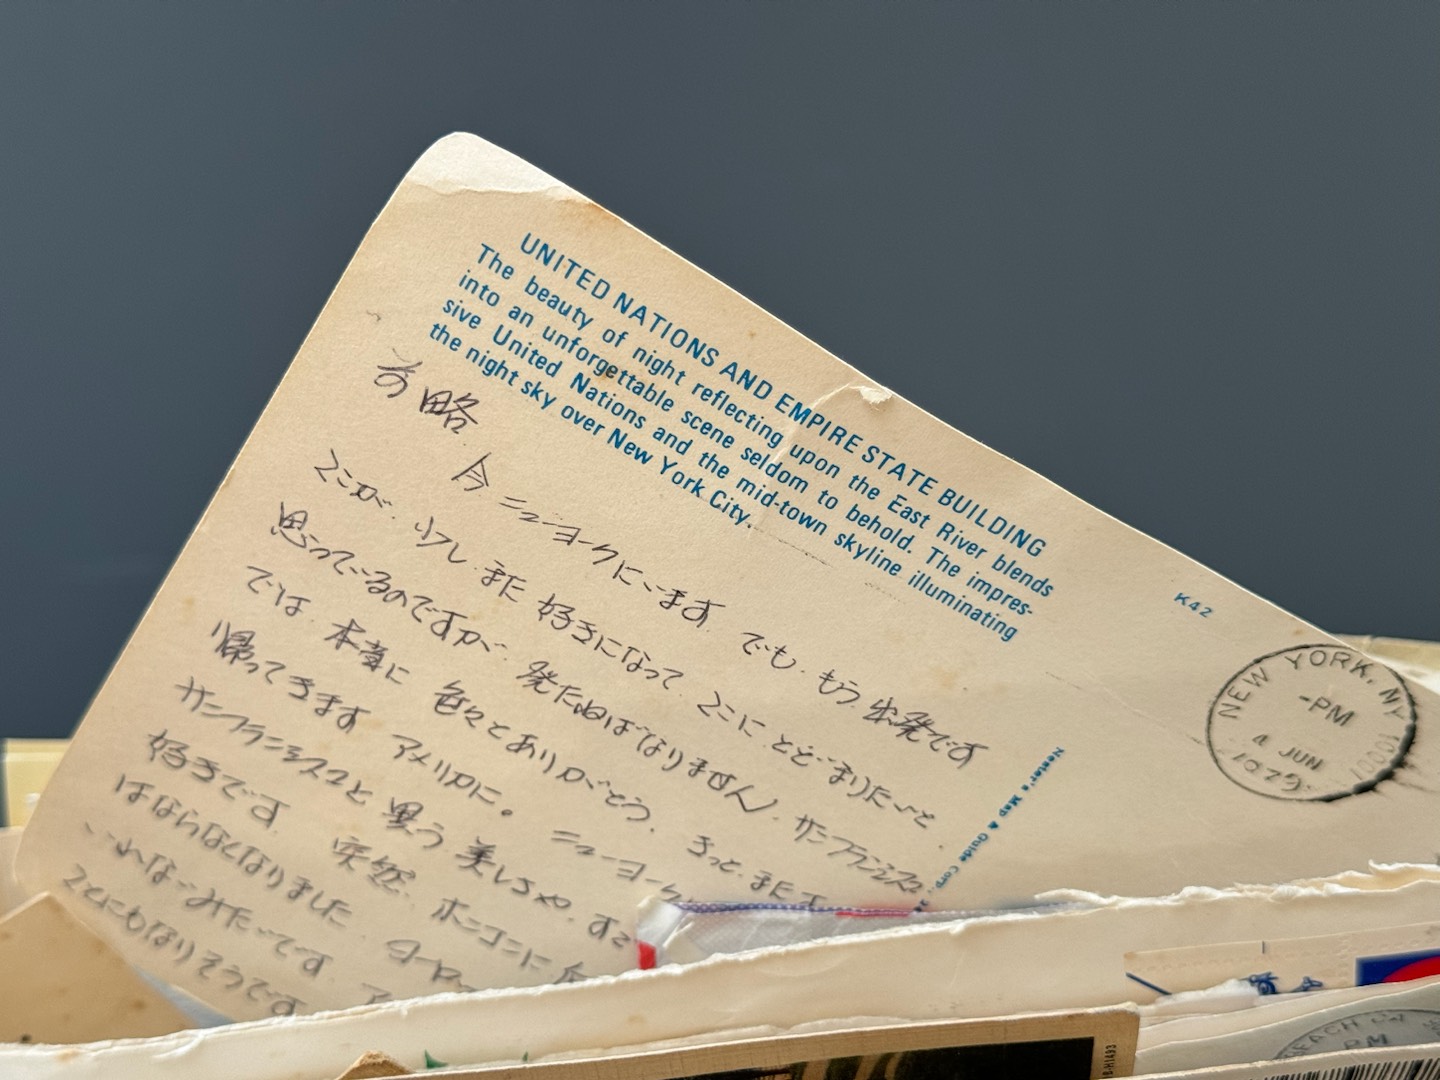 UNITED NATIONS AND EMPIRE STATE BUILDING
The beauty of night reflecting upon the East River blends
into an unforgettable scene seldom to behold. The impres-
sive United Nations and the mid-town skyline illuminating
the night sky over New York City.
K42
NEW YORK, NY
-PM
4 JUN
1979
10001
Nester's Map & Guide Corp.
前略
今 ニューヨークにいます でも もう 出発です
ここが 少し また 好きになって ここに とどまりたいと
思っているのですが 発たねばなりません サンフランシスコ
では 本当に 色々とありがとう きっと また
帰ってきます アメリカに。 ニューヨーク
サンフランシスコと 思う 美しさや
好きです 突然 ポンコンに
はならなくなりました ヨーロッ
みたいです
ことにもなりそうです
BEACH
PM